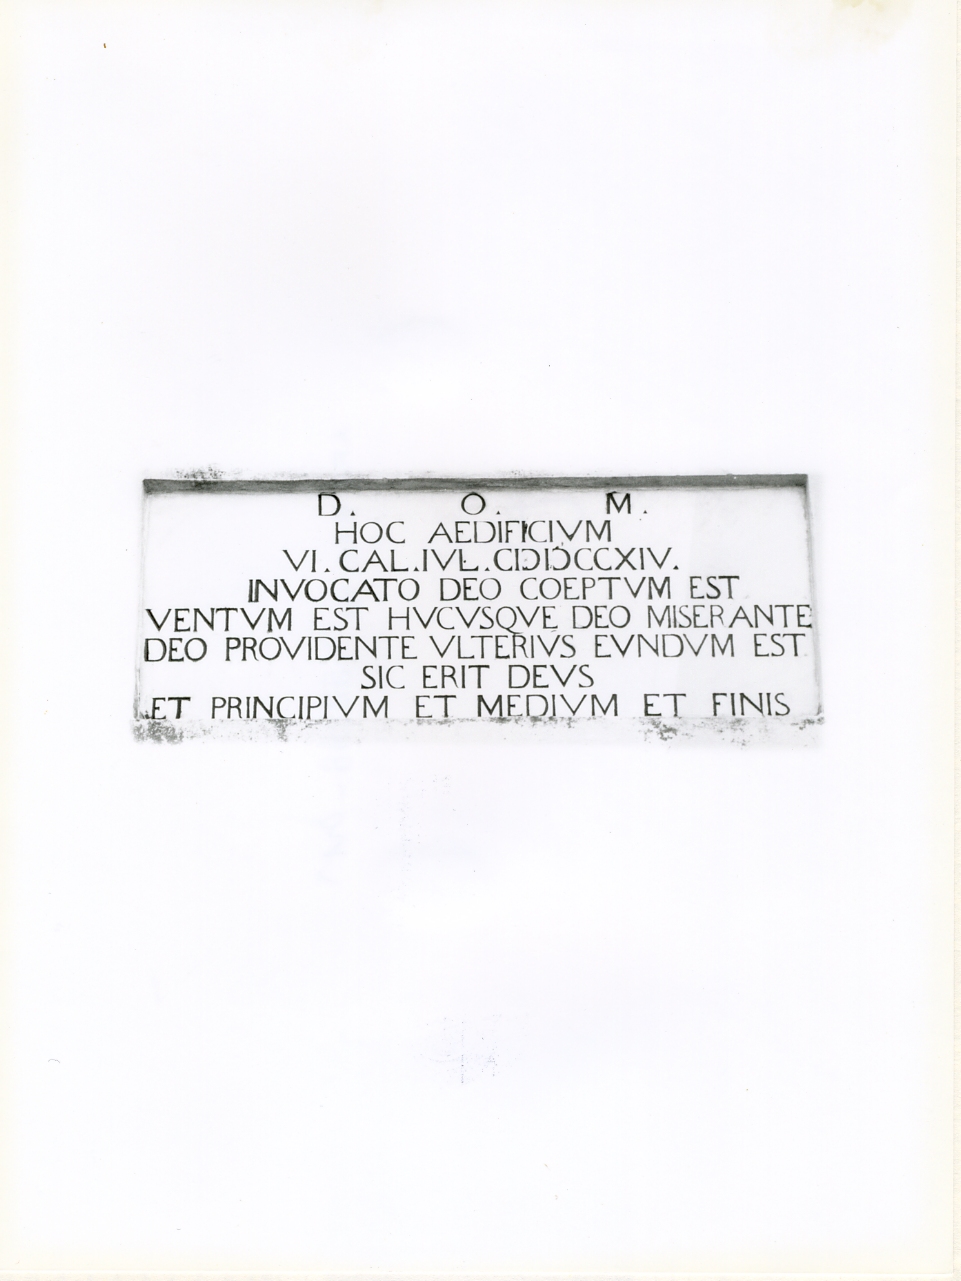 D. O. M.
HOC AEDIFICIVM
VI. CAL. IVL. CIƆIƆCCXIV.
INVOCATO DEO COEPTVM EST
VENTVM EST HVCVSQVE DEO MISERANTE
DEO PROVIDENTE VLTERIVS EVNDVM EST
SIC ERIT DEVS
ET PRINCIPIVM ET MEDIVM ET FINIS